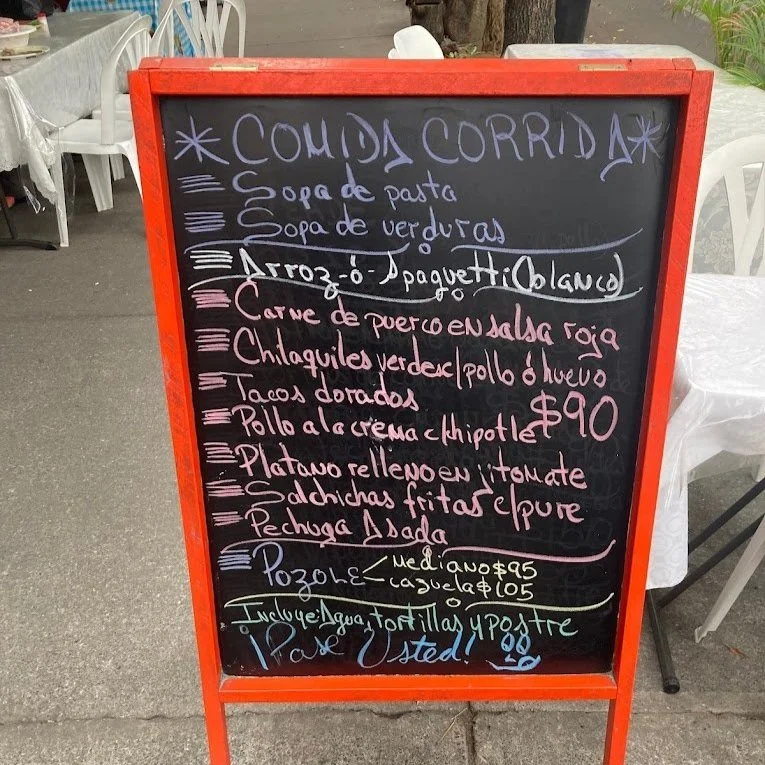 *COMIDA CORRIDA*
Sopa de pasta
Sopa de verduras
Arroz-ó-Spaguetti (blanco)
Carne de puerco en salsa roja
Chilaquiles verdes c/pollo ó huevo
Tacos dorados $90
Pollo a la crema c/chipotle
Platano relleno en jitomate
Salchichas fritas c/pure
Pechuga Asada
POZOLE
MEDIANO $95
cazuela $105
Incluye: Agua, tortillas y postre
¡Pase Usted!